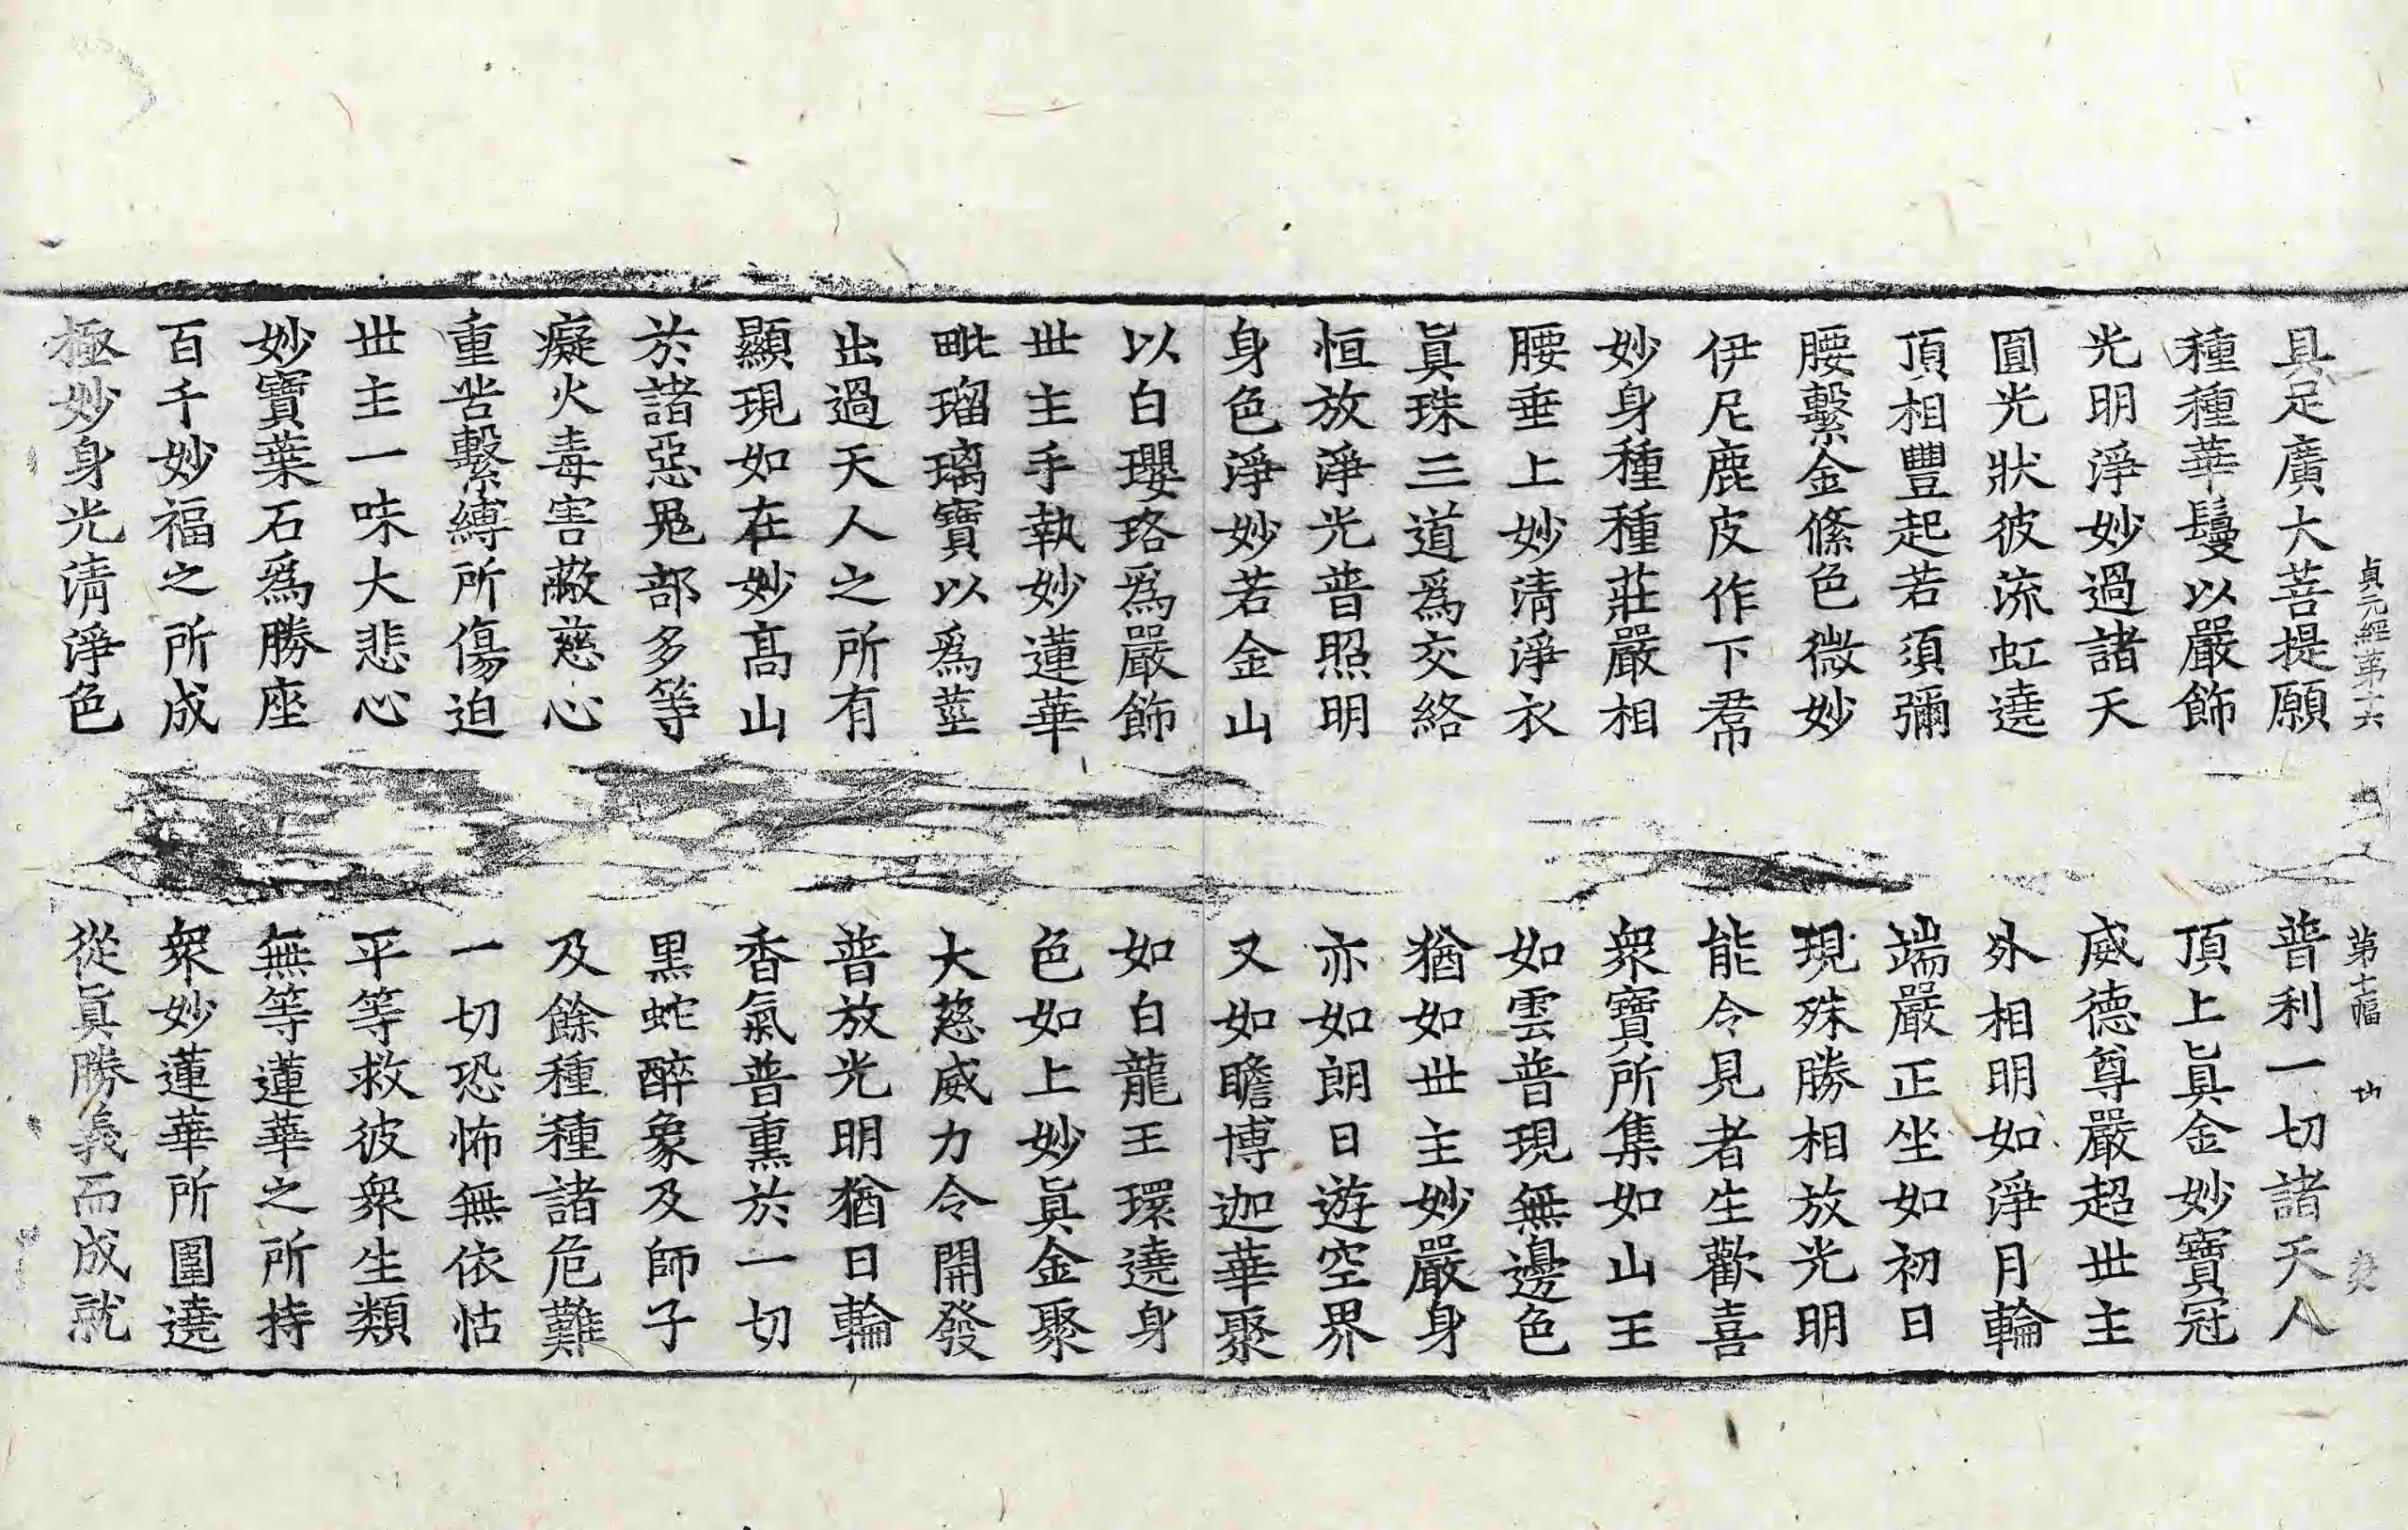 貞元經第十六 第十幅 功
具足廣大菩提願 普利一切諸天人
種種華鬘以嚴飾 頂上眞金妙寶冠
光明淨妙過諸天 威德尊嚴超世主
圓光狀彼流虹遶 外相明如淨月輪
頂相豐起若須彌 端嚴正坐如初日
腰繫金絛色微妙 現殊勝相放光明
伊尼鹿皮作下帬 能令見者生歡喜
妙身種種莊嚴相 衆寶所集如山王
腰垂上妙清淨衣 如雲普現無邊色
眞珠三道爲交絡 猶如世主妙嚴身
恒放淨光普照明 亦如朗日遊空界
身色淨妙若金山 又如瞻博迦華聚
以白瓔珞爲嚴飾 如白龍王環遶身
世主手執妙蓮華 色如上妙眞金聚
毗瑠璃寶以爲莖 大慈威力令開發
出過天人之所有 普放光明猶日輪
顯現如在妙高山 香氣普熏於一切
於諸惡鬼部多等 黑蛇醉象及師子
癡火毒害蔽慈心 及餘種種諸危難
重苦繫縛所傷迫 一切恐怖無依怙
世主一味大悲心 平等救彼衆生類
妙寶葉石爲勝座 無等蓮華之所持
百千妙福之所成 衆妙蓮華所圍遶
極妙身光清淨色 從眞勝義而成就